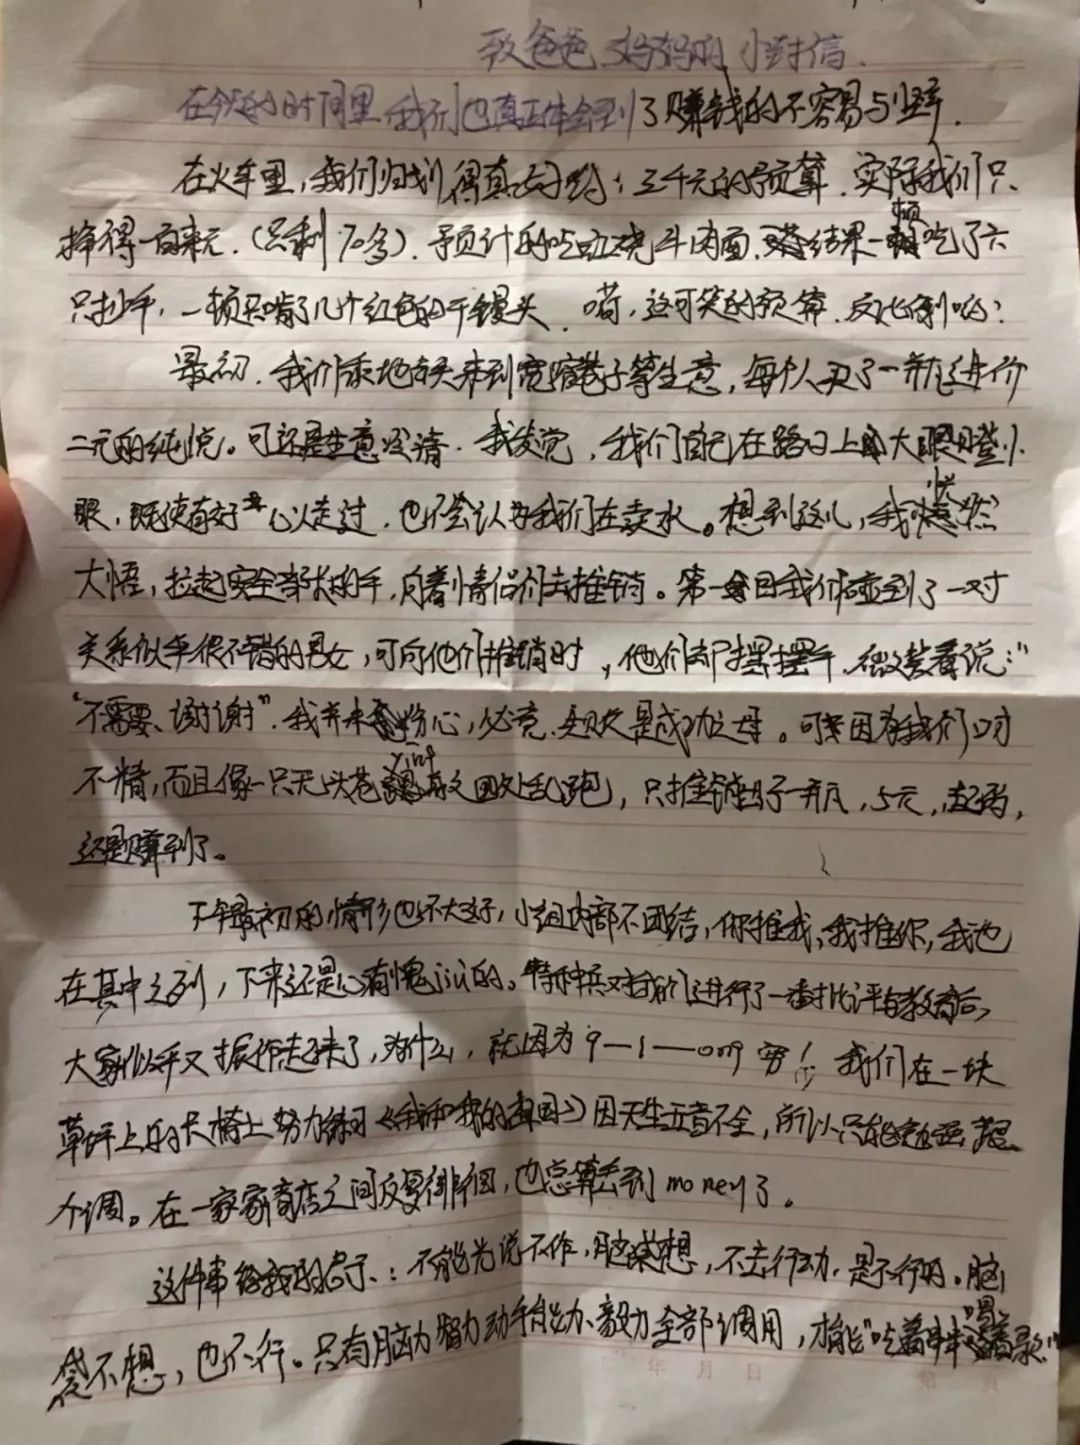 致爸爸、妈妈的一小封信.
在今天的时间里,我们也真正体会到了赚钱的不容易与艰辛.
在火车里,我们归划得真好:三千元的预算.实际我们只
挣得一百来元.(只剩70多).预计的吃红烧牛肉面,结果一顿吃了六
只抄手,一顿只啃了几个红色的干馒头.嗬,这可笑的预算.
最初.我们乘地铁来到宽窄巷子等生意,每个人买了一瓶进价
二元的纯悦。可还是生意冷清.我发觉,我们自己在路口上大眼瞪小
眼,既使有好心人走过.也不会认为我们在卖水。想到这儿,我恍然
大悟,拉起安全部长的手,向着情侣们去推销。第一回我们碰到了一对
关系似乎很不错的男女,可向他们推销时,他们却摆摆手.微笑着说:"
"不需要、谢谢".我并未伤心,必竟.失败是成功之母。可因为我们口才
不精,而且像一只无头苍ying四处乱跑,只推销出了一瓶,5元,
还是赚到了。
下午最初的情形也不大好,小组内部不团结,你推我,我推你,我也
在其中之列,下来还是心有愧jiù的。特种兵对我们进行了一番批评与教育后,
大家似乎又振作起来了,为什么,就因为9—1—ong穷!我们在一块
草坪上的长椅上努力练习《我和我的祖国》因天生五音不全,所以只能
个调。在一家家商店之间反复徘徊,也总算去到money了。
这件事给我的启示:不能光说不作,脑袋想,不去行动.是不行的。脑
袋不想,也不行。只有脑力智力动手能力、毅力全部调用,才能"吃着串串喝着